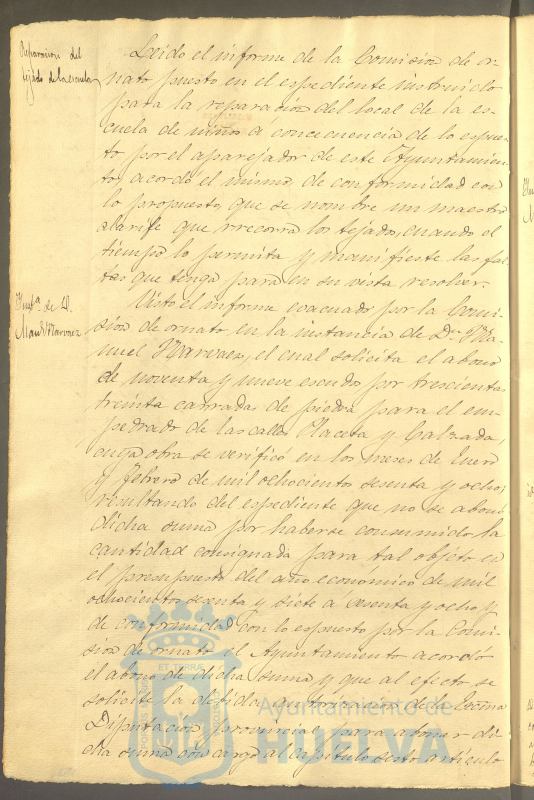 Reparacion del
tejado de la escuela
Leido el informe de la Comision de or-
nato puesto en el espediente instruido
para la reparacion del local de la es-
cuela de niños á concecuencia de lo espues-
to por el aparejador de este Ayuntamien-
to, acordó el mismo, de conformidad con
lo propuesto, que se nombre un maestro
alarife que recorra los tejados, cuando el
tiempo lo permita y manifieste las fal-
tas que tenga para en su vista resolver.
Insta. de D.
Manl. Narvaez
Visto el informe evacuado por la Comi-
sion de ornato en la instancia de Dn. Ma-
nuel Narvaez, el cual solicita el abono
de noventa y nueve escudos por trescientas
treinta carradas de piedra para el em-
pedrado de las calles Placeta y Calzada,
cuya obra se verificó en los meses de Enero
y febrero de mil ochocientos sesenta y ocho,
resultando del espediente que no se abonó
dicha suma por haberse consumido la
cantidad consignada para tal objeto en
el presupuesto del año economico de mil
ochocientos sesenta y siete a sesenta y ocho y
de conformidad con lo espuesto por la Comi-
sion de ornato el Ayuntamiento acordó
el abono de dicha suma y que al efecto se
solicite la debida autorizacion de la Escma
Diputacion provincial para abonar di-
cha suma con cargo al Capitulo sesto articulo
Ayuntamiento de
HUELVA